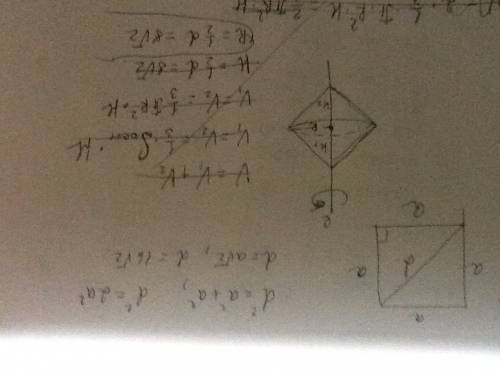 d² = a² + a², d² = 2a²
d = a√2, d = 16√2
a
a
d
a
a
e
V = V₁ + V₂
V₁ = V₂ = 1/3 Sосн · H
V₁ = V₂ = 1/3 πR² · H
H = 1/2 d = 8√2
R = 1/2 d = 8√2
H
R
H
1/3 π · R² · H = 2/3 πR² H